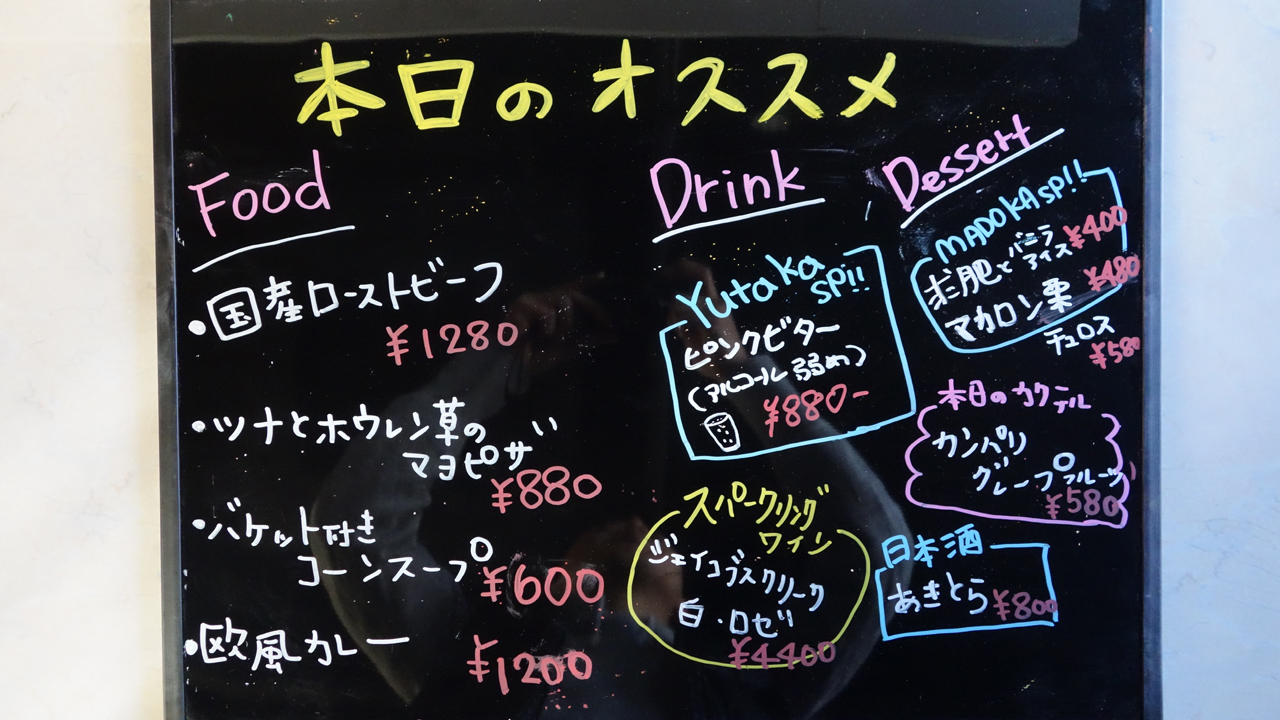 本日のオススメ
Food
・国産ローストビーフ
¥1280
・ツナとホウレン草の
マヨピザ
¥880
・バケット付き
コーンスープ
¥600
・欧風カレー
¥1200
Drink
Yutaka
SP!!
ピンクビター
(アルコール弱め)
¥880-
スパークリング
ワイン
ジェイコブスクリーク
白・ロゼ
¥4400
Dessert
MADOKA SP!!
求肥とバニラ
アイス ¥400
マカロン栗 ¥480
チュロス
¥580
本日のカクテル
カンパリ
グレープフルーツ
¥580
日本酒
あきとら ¥800